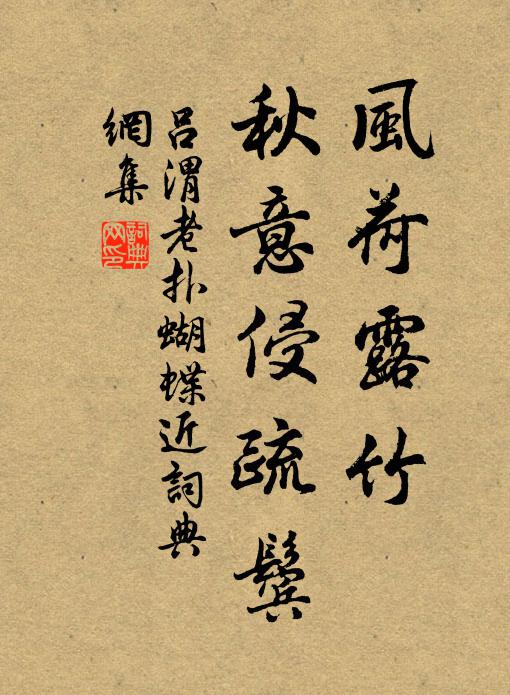 風荷露竹
秋意侵疏鬢
呂渭老扑蝴蝶近詞典
網集
詞典
网印